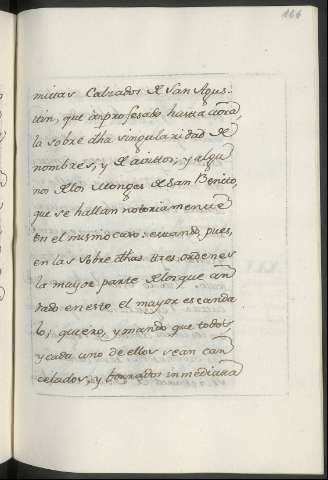 166
mitas Calzados de San Agus-
tin, que improfesado hasta aora,
la sobre dha singularidad de
nombres, y de avitos, y algu
nos de los Monges de San Benito,
que se hallan notoriamente
en el mismo caso: estando, pues,
en las sobre dhas tres ordenes
la mayor parte de los que an
dado en esto el mayor escanda
lo; quiero, y mando que todos,
y cada uno de ellos sean can
celados, y borrados inmediata